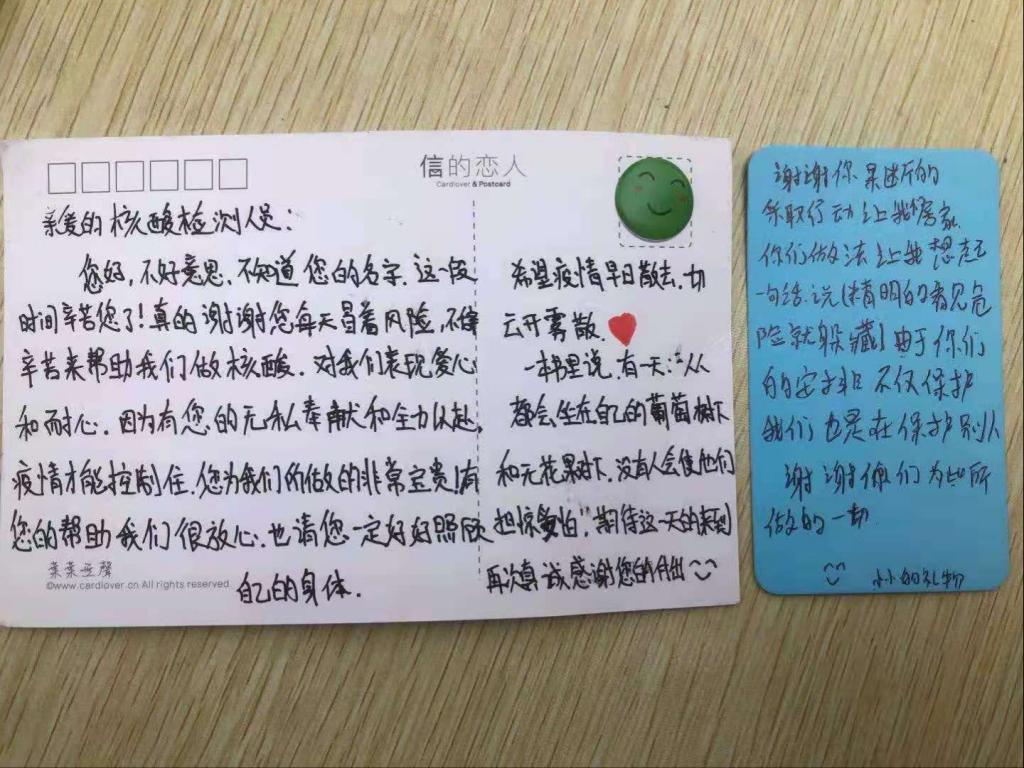 信的恋人
Cardlover & Postcard
亲爱的核酸检测人员：
您好，不好意思，不知道您的名字，这一段
时间辛苦您了！真的谢谢您每天冒着风险，不惮
辛苦来帮助我们做核酸，对我们表现爱心
和耐心，因为有您的无私奉献和全力以赴，
疫情才能控制住，您为我们所做的非常宝贵！有
您的帮助我们很放心，也请您一定好好照顾
自己的身体．
葉葉無聲
©www.cardlover.cn All rights reserved.
希望疫情早日散去，切
云开雾散．
一本书里说，有一天：“人人
都会坐在自己的葡萄树下
和无花果树下，没有人会使他们
担惊受怕”，期待这一天的来到
再次真诚感谢您的付出
谢谢你果断的
采取行动让我居家
你们做法让我想起
一句话，说（精明的看见危
险就躲藏）由于你们
的安排不仅保护
我们也是在保护别人
谢谢你们为此所
做的一切
小小的礼物